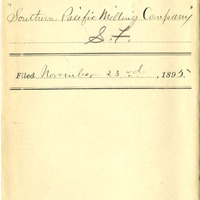 "Southern Pacific Milling Company"
S.F.
Filed November 23rd, 1895.